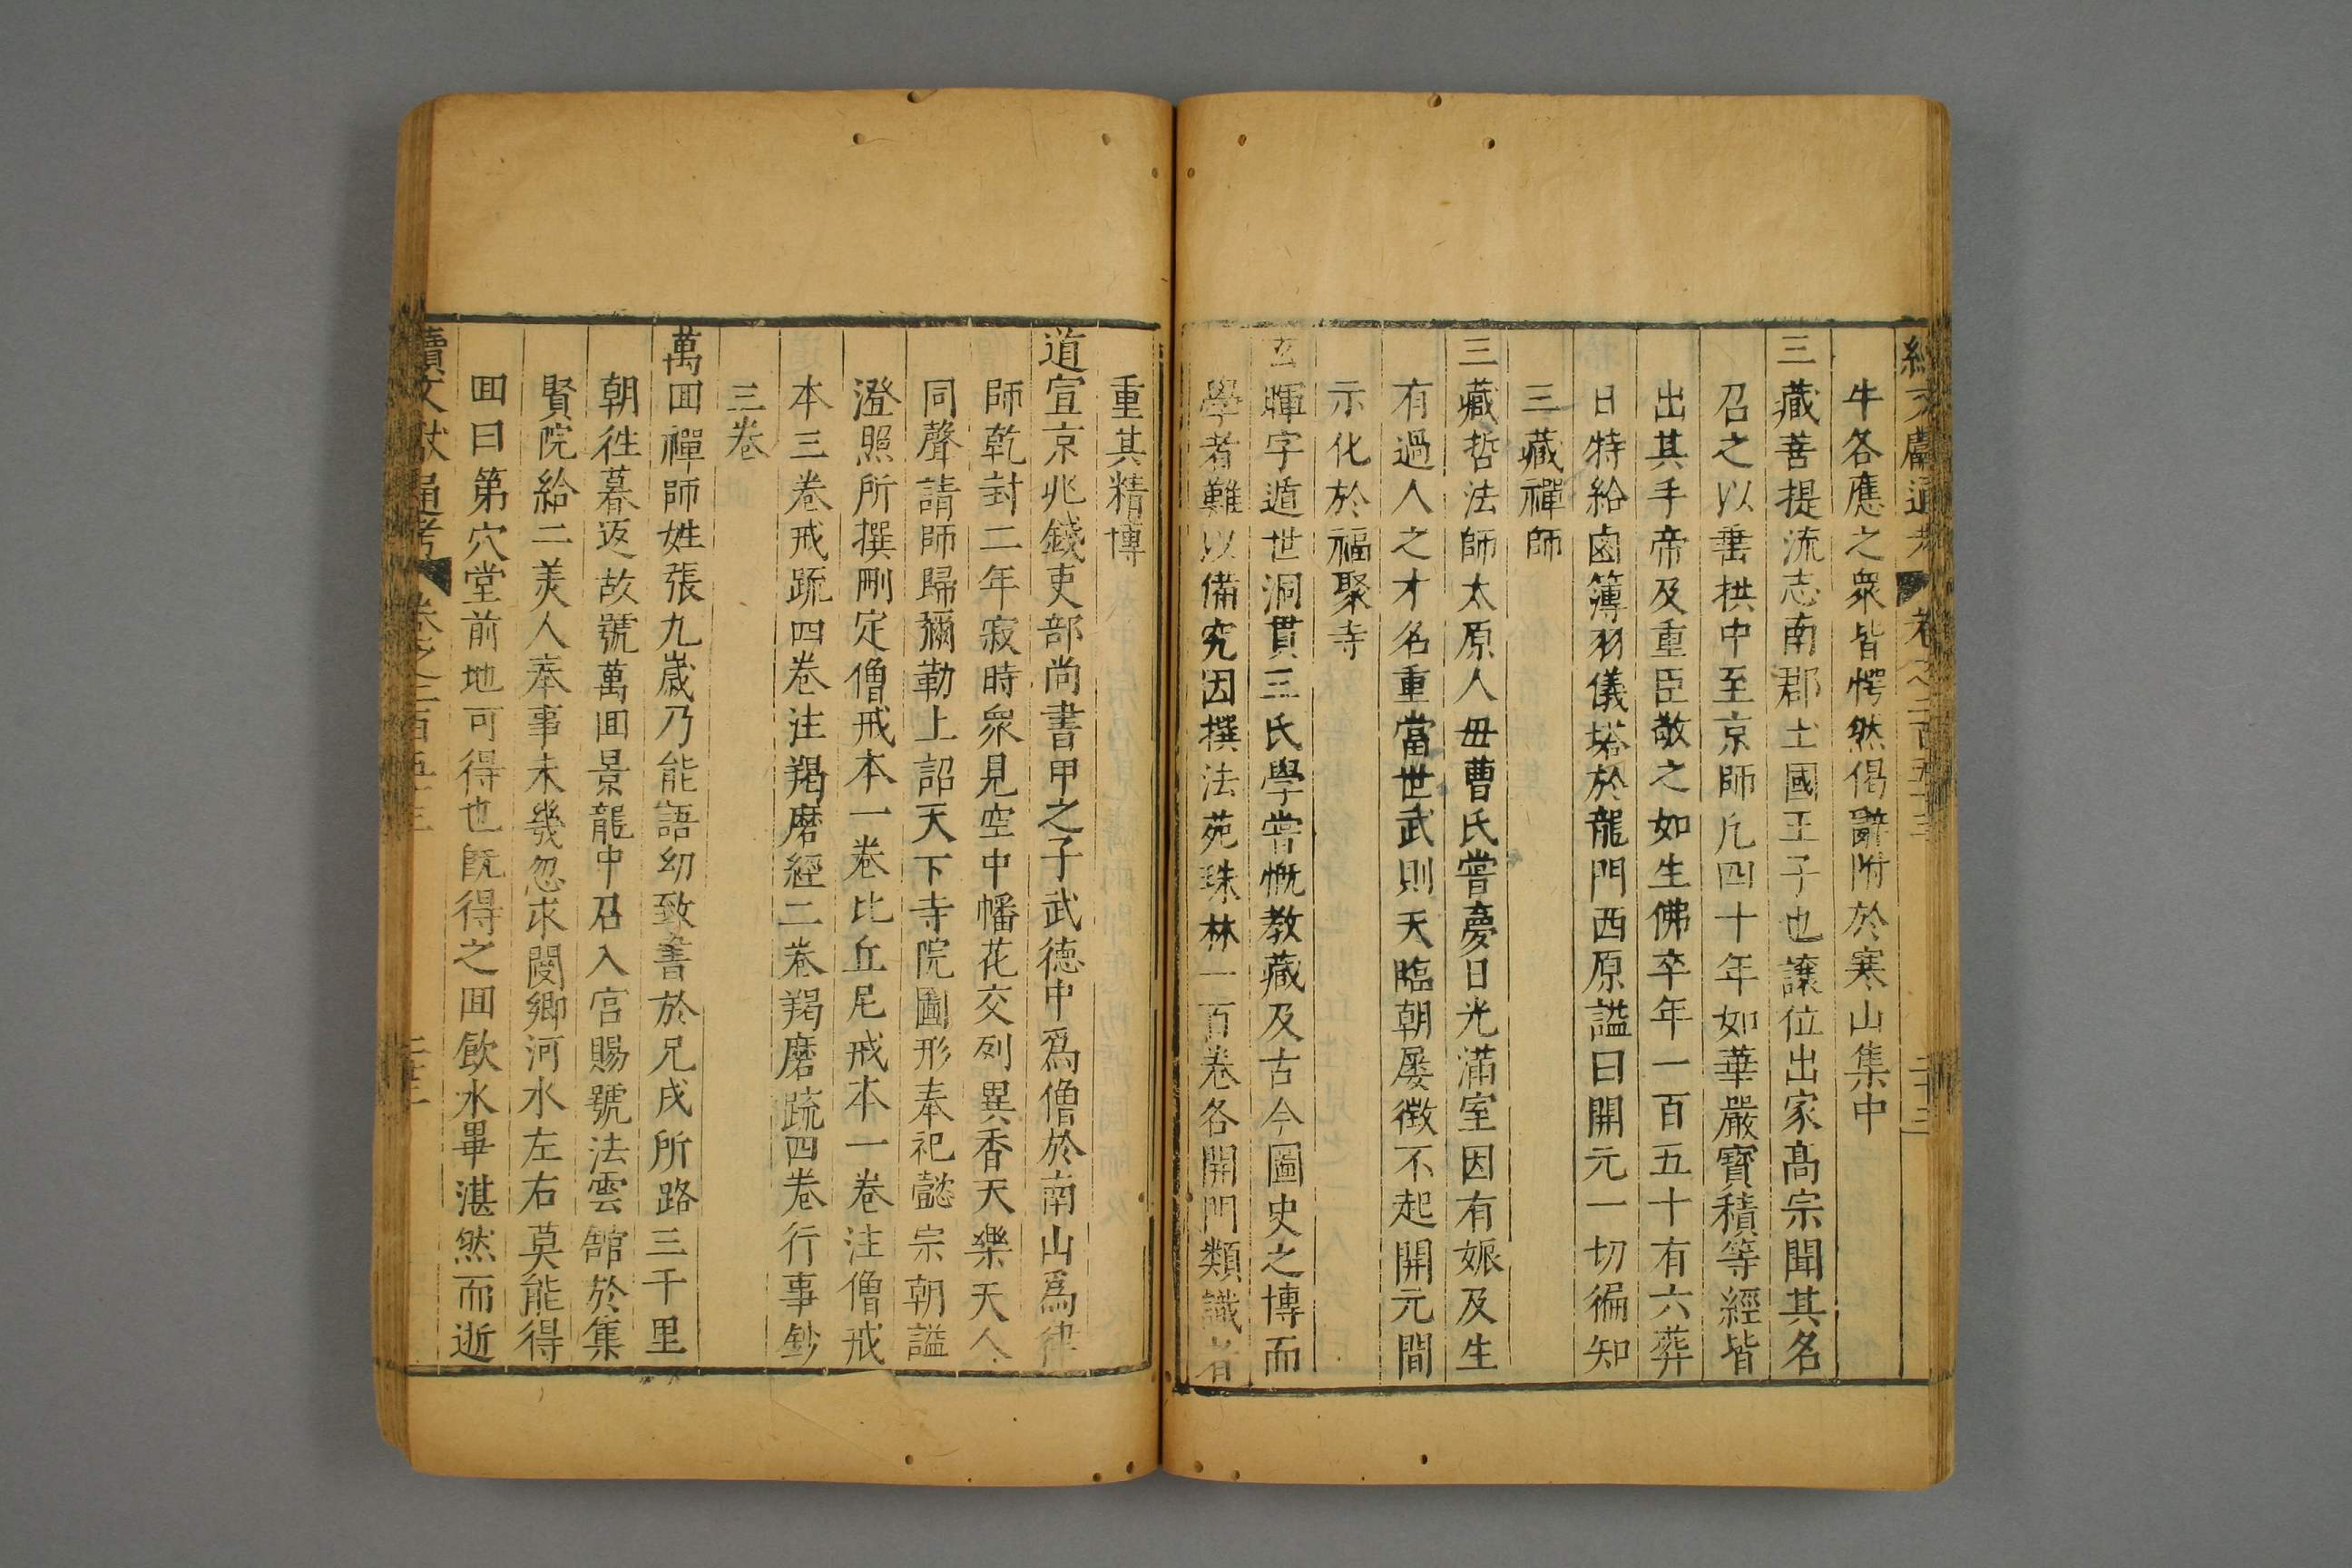 續文獻通考 卷之二百五十三 二十三
牛各應之衆皆愕然偈辭附於寒山集中
三藏菩提流志南郡土國王子也讓位出家髙宗聞其名
召之以垂拱中至京師凢四十年如華嚴寳積等經皆
出其手帝及重臣敬之如生佛卒年一百五十有六葬
日特給鹵簿羽儀塔於龍門西原謚曰開元一切徧知
三藏禪師
三藏哲法師太原人毋曹氏嘗夣日光滿室因有娠及生
有過人之才名重當世武則天臨朝屡徴不起開元間
示化於福聚寺
玄暉字遁世洞貫三氏學嘗慨教藏及古今圖史之博而
學者難以備究因撰法苑珠林一百卷各開門類識者
重其精博
道宣京兆錢吏部尚書甲之子武德中爲僧於南山爲律
師乾封二年寂時衆見空中幡花交列異香天樂天人
同聲請師歸彌勒上詔天下寺院圖形奉祀懿宗朝謚
澄照所撰刪定僧戒本一卷比丘尼戒本一卷注僧戒
本三卷戒䟽四卷注羯磨經二卷羯磨疏四卷行事鈔
三卷
萬囬禪師姓張九歳乃能語幼致書於兄戍所路三千里
朝徃暮返故號萬囬景龍中召入宫賜號法雲舘於集
賢院給二美人奉事未幾忽求閿鄉河水左右莫能得
囬曰第穴堂前地可得也旣得之囬飲水畢湛然而逝
續文獻通考 卷之二百五十三